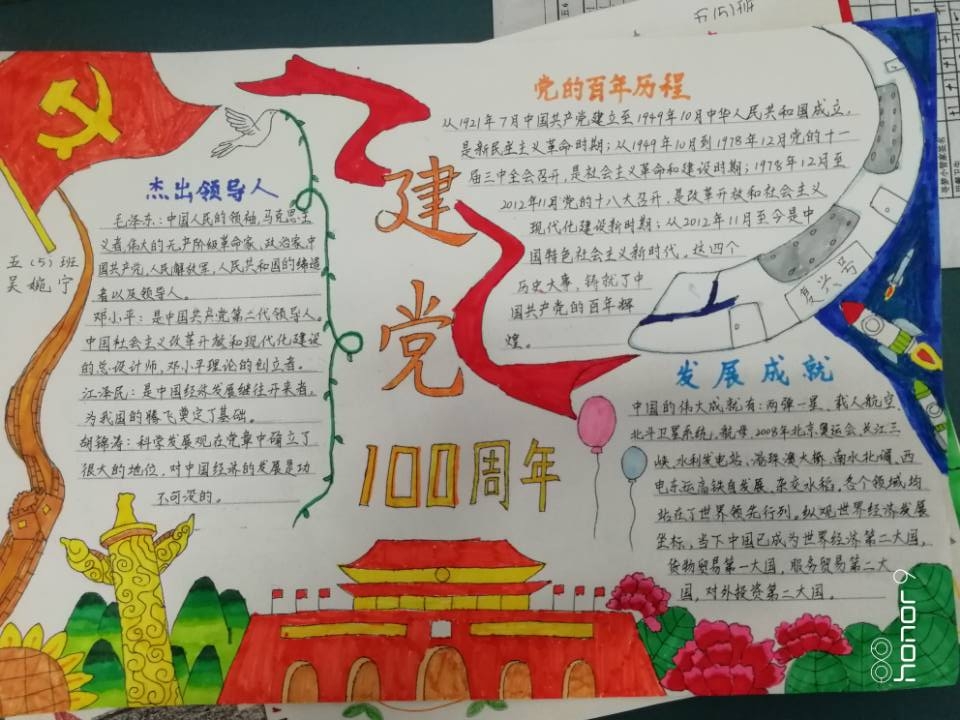 五(5)班
党的百年历程
从1921年7月中国共产党建立至1949年10月中华人民共和国成立,
是新民主主义革命时期;从1949年10月到1978年12月党的十一
届三中全会召开,是社会主义革命和建设时期;1978年12月至
2012年11月党的十八大召开,是改革开放和社会主义
现代化建设新时期;从2012年11月至今是中
国特色社会主义新时代,这四个
历史大事,铸就了中
国共产党的百年辉
煌。
杰出领导人
毛泽东:中国人民的领袖,马克思主
义者,伟大的无产阶级革命家、政治家,中
国共产党,人民解放军,人民共和国的缔造
者以及领导人。
邓小平:是中国共产党第二代领导人。
中国社会主义改革开放和现代化建设
的总设计师,邓小平理论的创立者。
江泽民:是中国经济发展继往开来者,
为我国的腾飞奠定了基础。
胡锦涛:科学发展观在党章中确立了
很大的地位,对中国经济的发展是功
不可没的。
五(5)班
吴婉宁
建
党
100周年
复兴号
发展成就
中国的伟大成就有:两弹一星、载人航空,
北斗卫星系统,航母,2008年北京奥运会,长江三
峡,水利发电站,港珠澳大桥,南水北调,西
电东运,高铁自发展、杂交水稻,各个领域,均
站在了世界领先行列。纵观世界经济发展
坐标,当下中国已成为世界经济第二大国,
货物贸易第一大国,服务贸易第二大
国,对外投资第二大国。
honor9